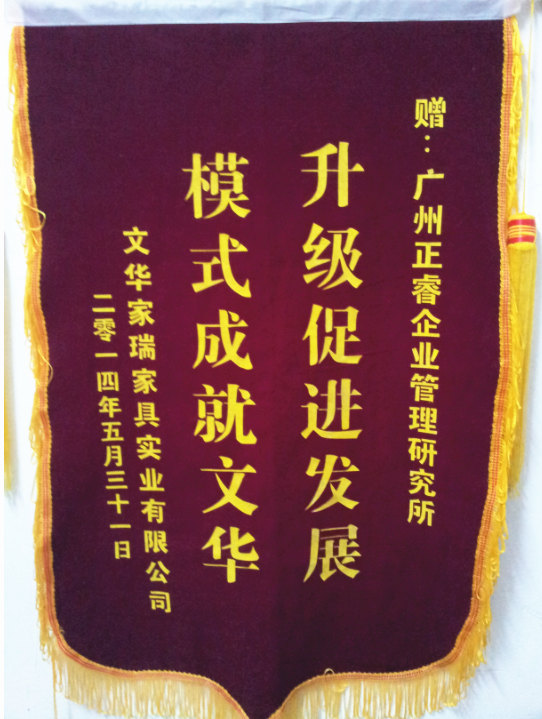 赠：广州正睿企业管理研究所
升级促进发展
模式成就文华
文华家瑞家具实业有限公司
二零一四年五月三十一日